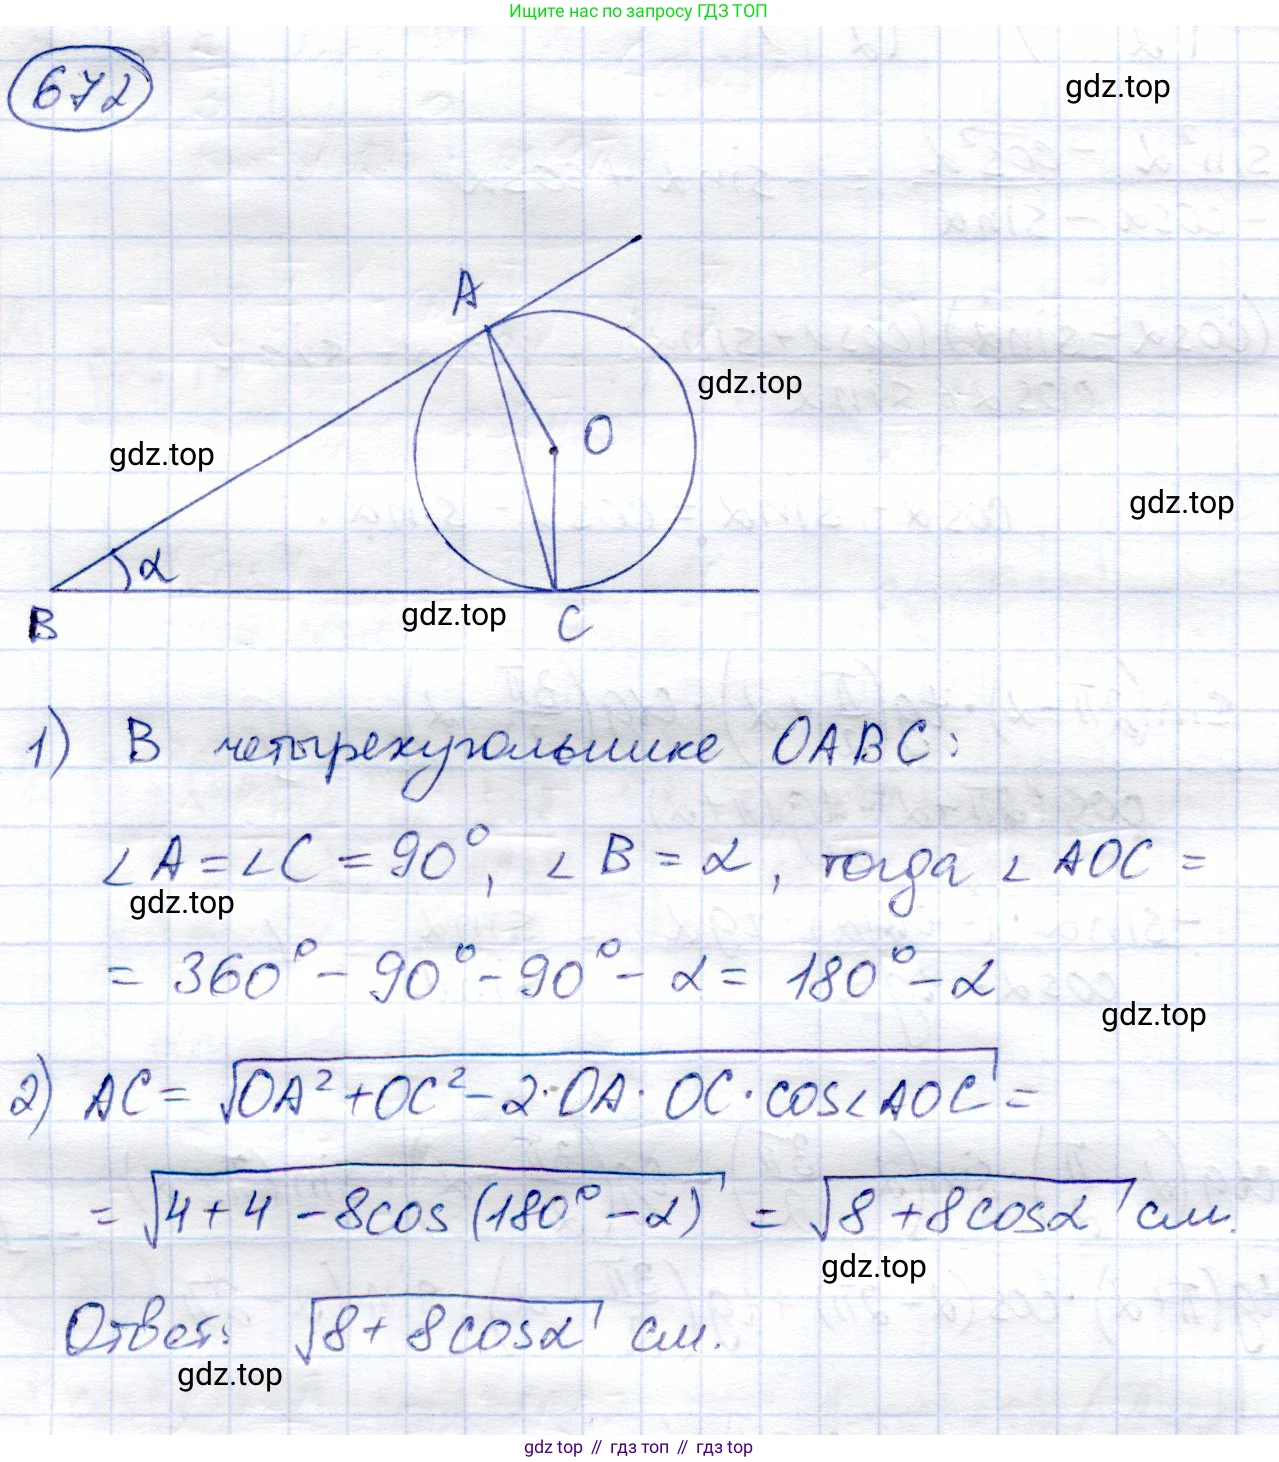 Ищите нас по запросу ГДЗ ТОП
672
gdz.top
A
gdz.top
O
gdz.top
gdz.top
α
B
gdz.top
C
1) В четырехугольнике OABC:
∠A = ∠C = 90°, ∠B = α, тогда ∠AOC =
gdz.top
= 360° - 90° - 90° - α = 180° - α
gdz.top
2) AC = √(OA² + OC² - 2·OA·OC·cos∠AOC) =
= √(4 + 4 - 8cos(180° - α)) = √(8 + 8cosα) см.
gdz.top
Ответ: √(8 + 8cosα) см.
gdz.top
gdz top // гдз топ // гдз top